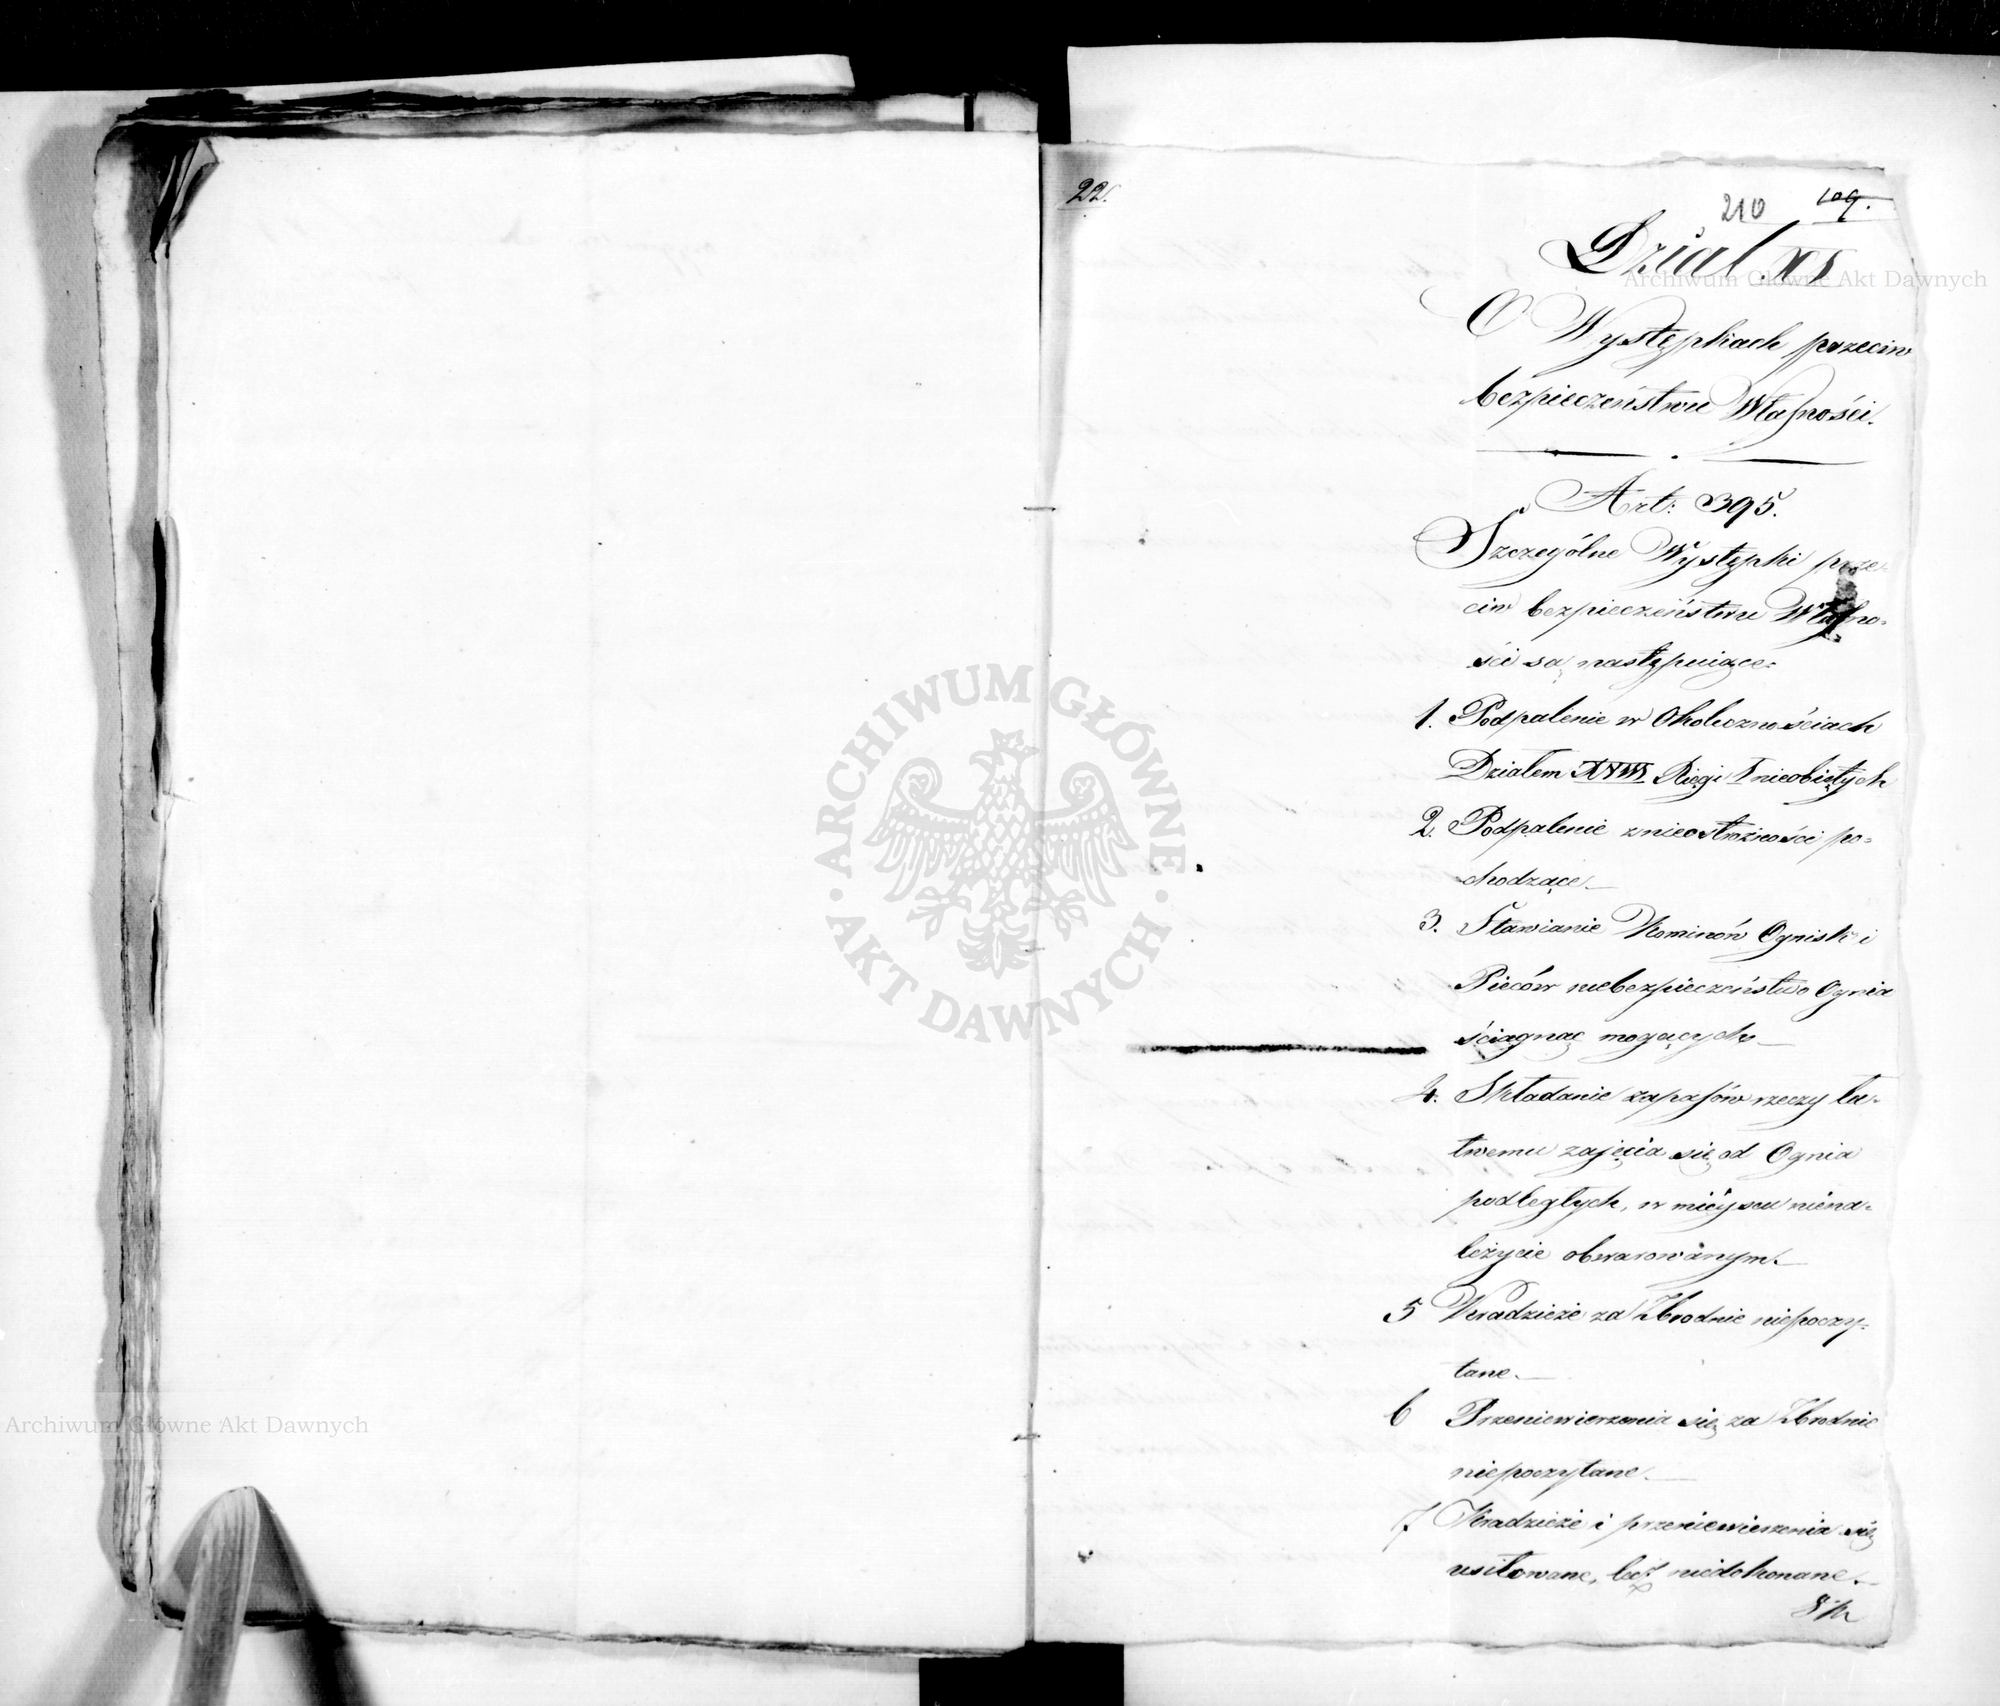 22.
210 109.
Dział XI
O Występkach przeciw
bezpieczeństwu Własności.
Art: 395.
Szczególne Występki prze-
ciw bezpieczeństwu Własno-
ści są następuiące:
1. Podpalenie w Okolicznościach
Działem XVIII Xięgi I nieobiętych
2. Podpalenie z nieostrożności po-
chodzące
3. Stawianie Kominów Ognisk i
Pieców niebezpieczeństwo Ognia
ściągnąc mogących
4. Składanie zapasów rzeczy ła-
twemu zajęcia się od Ognia
podległych, w mieyscu niena-
leżycie obwarowanym.
5 Kradzieże za Zbrodnie niepoczy-
tane.
6 Przeniewierzenia się za Zbrodnie
niepoczytane.
7 Kradzieże i przeniewierzenia się
usiłowane, lecz niedokonane.
ARCHIWUM GŁÓWNE
AKT DAWNYCH
Archiwum Główne Akt Dawnych
Archiwum Główne Akt Dawnych